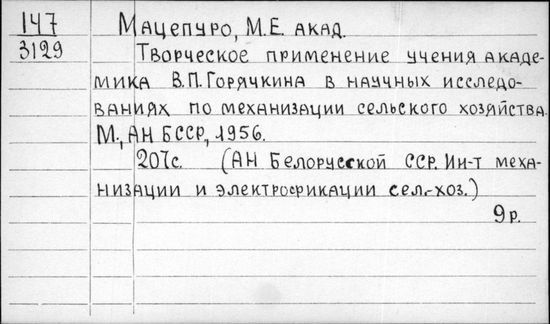 147
3129
Мацепуро, М.Е. акад.
Творческое применение учения акаде-
мика В.П. Горячкина в научных исследо-
ваниях по механизации сельского хозяйства.
М., АН БССР, 1956.
207с. (АН Белорусской ССР. Ин-т меха-
низации и электрофикации сел.-хоз.)
9р.